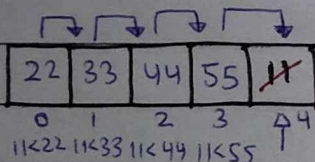 22 33 44 55 11
0 1 2 3 4
11<22 11<33 11<44 11<55